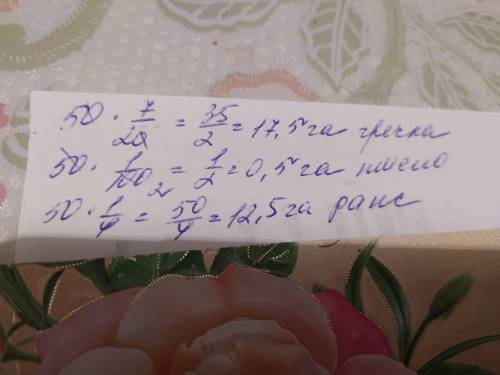 50 · 7/20 = 35/2 = 17,5 га гречка
50 · 1/100 2 = 1/2 = 0,5 га пшено
50 · 1/4 = 50/4 = 12,5 га рапс